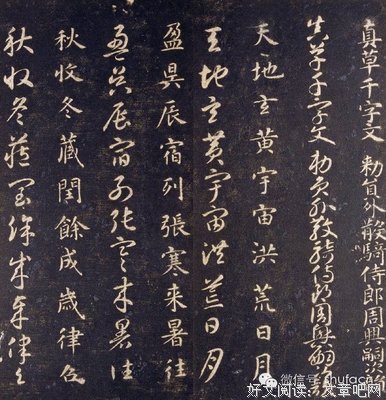 真草千字文 勅員外散騎侍郎周興嗣次
真草千字文 勅員外散騎侍郎周興嗣次
天地玄黃宇宙洪荒日月
天地玄黃宇宙洪荒日月
盈昃辰宿列張寒来暑往
盈昃辰宿列張寒来暑往
秋收冬藏閏餘成歲律呂
秋收冬藏閏餘成歲律呂
微信号
好文阅读：文章吧网